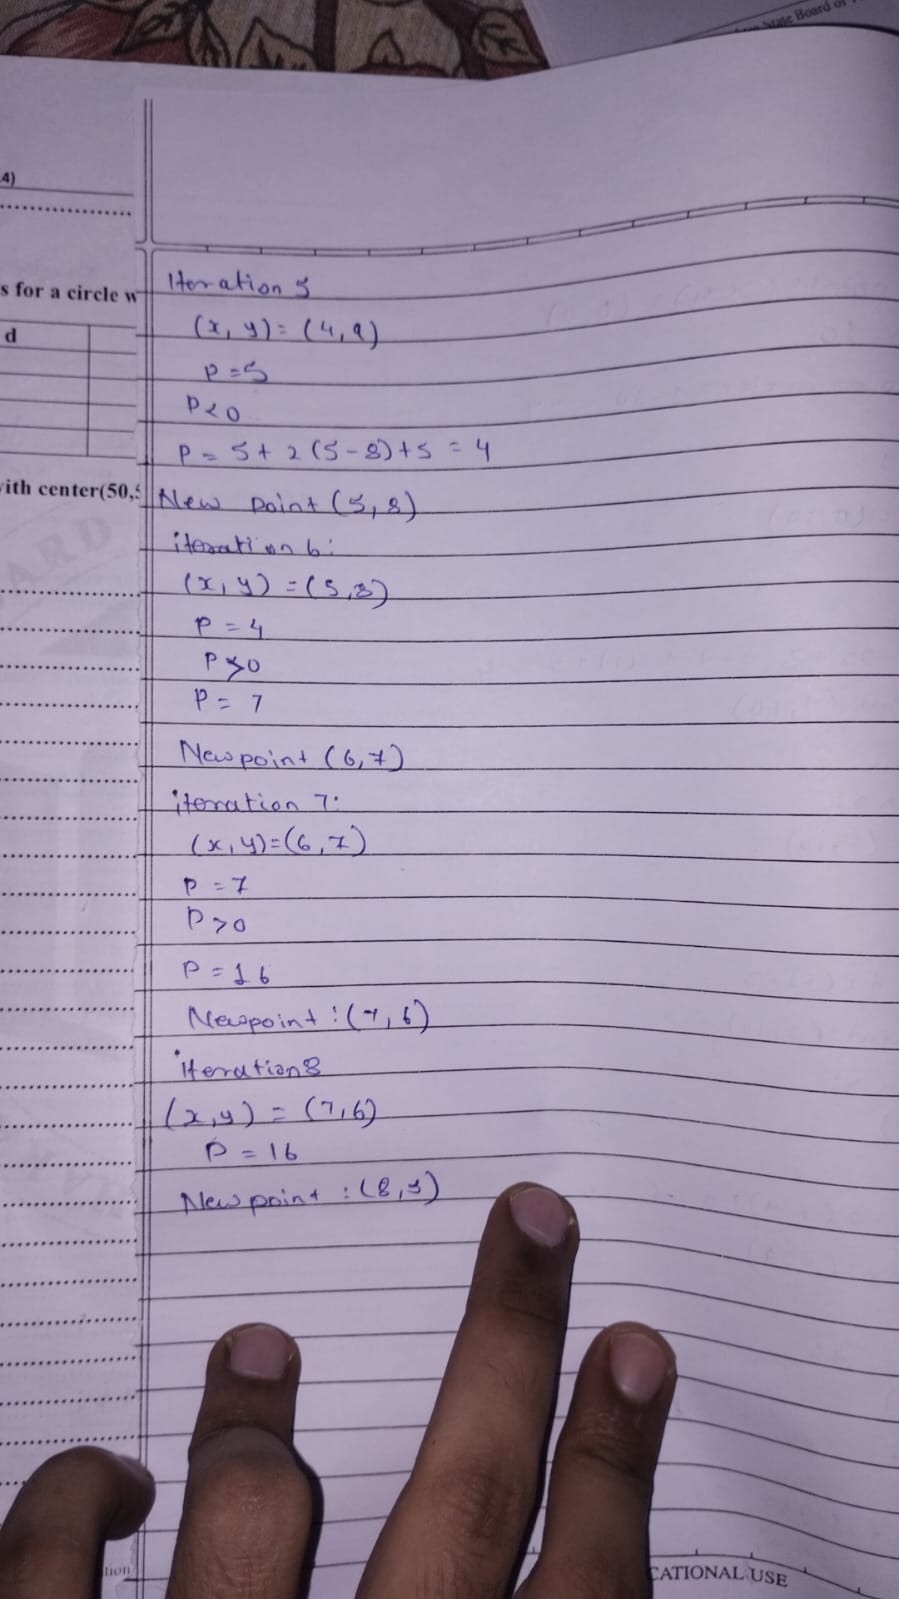 State Board of
4)
s for a circle w
d
with center(50,5
Iteration 5
(x, y) = (4,9)
P = 5
P < 0
P = 5 + 2 (5-8)+5 = 4
New point (5,8)
iteration 6:
(x, y) = (5,8)
P = 4
P > 0
P = 7
New point (6,7)
iteration 7:
(x, y) = (6,7)
P = 7
P > 0
P = 16
Newpoint : (7,6)
iteration 8
(x,y) = (7,6)
P = 16
New point : (8,5)
tion
CATIONAL USE